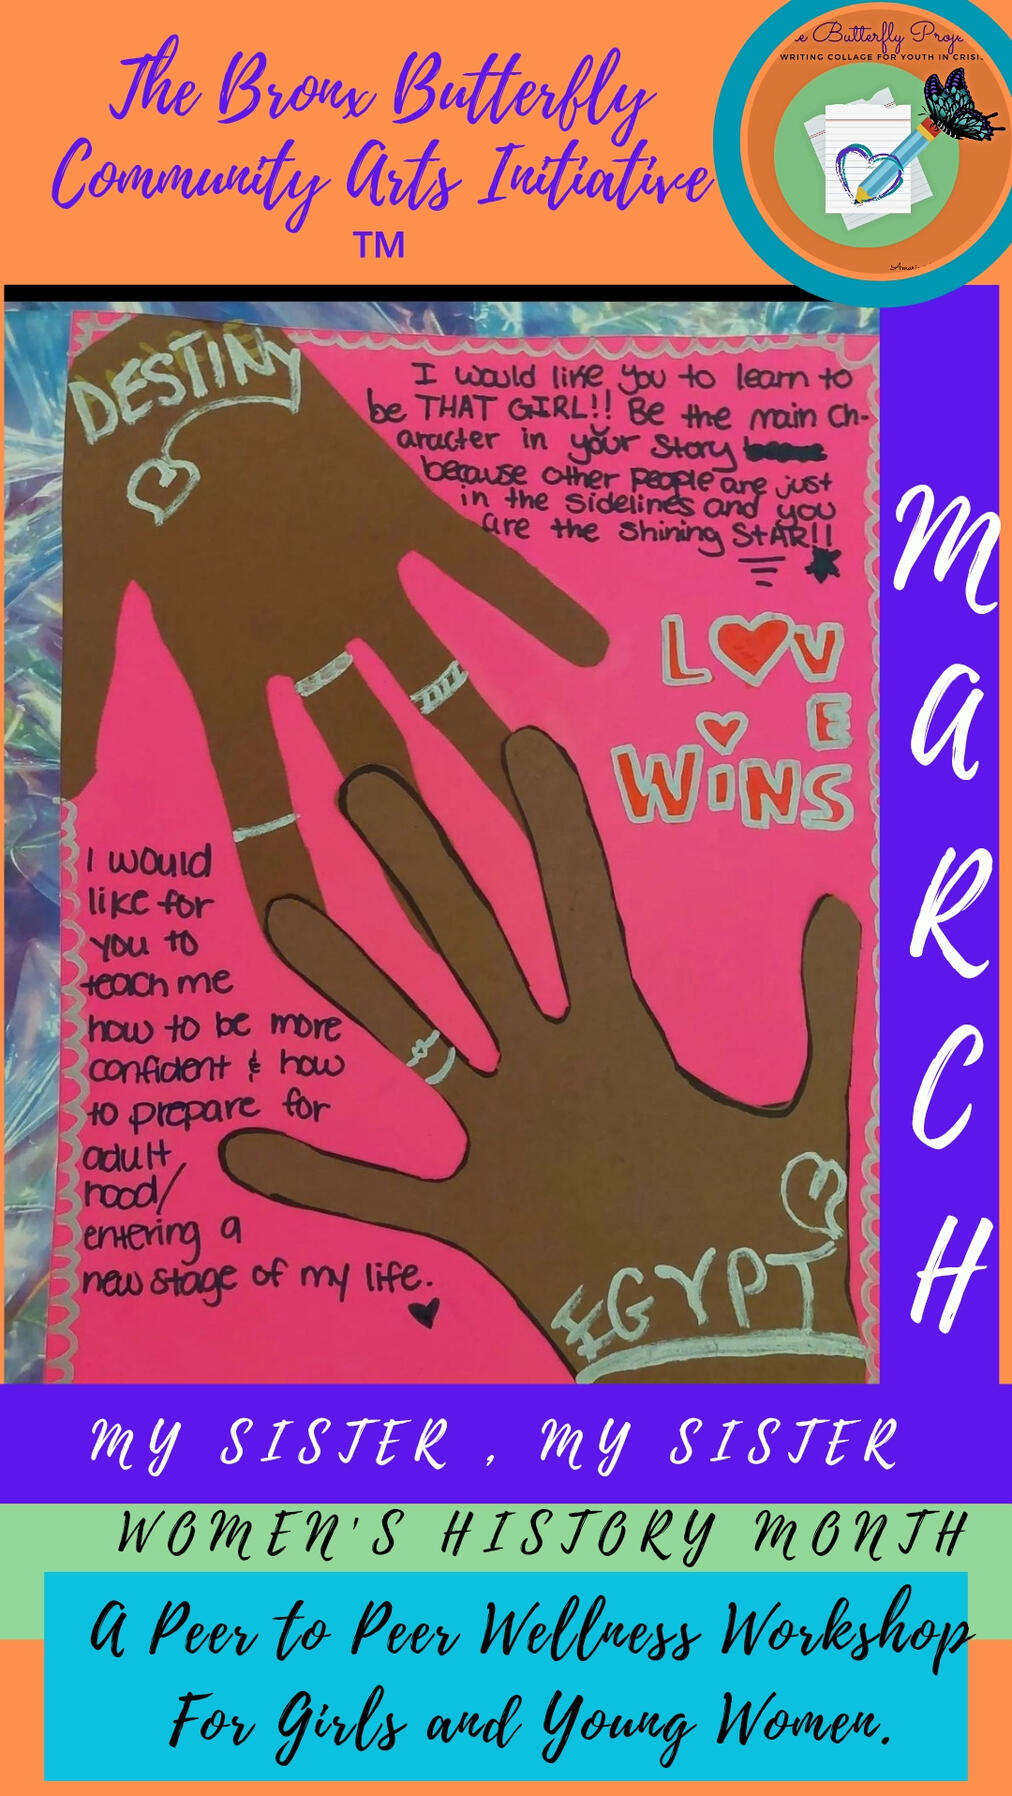 The Bronx Butterfly
Community Arts Initiative
TM
e Butterfly Proje
WRITING COLLAGE FOR YOUTH IN CRISI
DESTINY
I would like you to learn to
be THAT GIRL!! Be the main ch-
aracter in your story
because other people are just
in the sidelines and you
are the shining STAR!!
LOV
E
WiNS
I would
like for
you to
teach me
how to be more
confident & how
to prepare for
adult
hood/
entering a
new stage of my life.
EGYPT
MARCH
MY SISTER , MY SISTER
WOMEN'S HISTORY MONTH
A Peer to Peer Wellness Workshop
For Girls and Young Women.